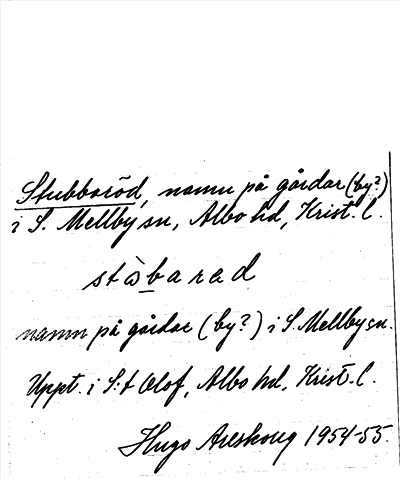 Stubbaröd, namn på gårdar (by?)
i S. Mellby sn, Albo hd, Krist. l.
stòbarad
namn på gårdar (by?) i S. Mellby sn.
Uppt. i S:t Olof, Albo hd, Krist. l.
Hugo Areskoug 1954-55.